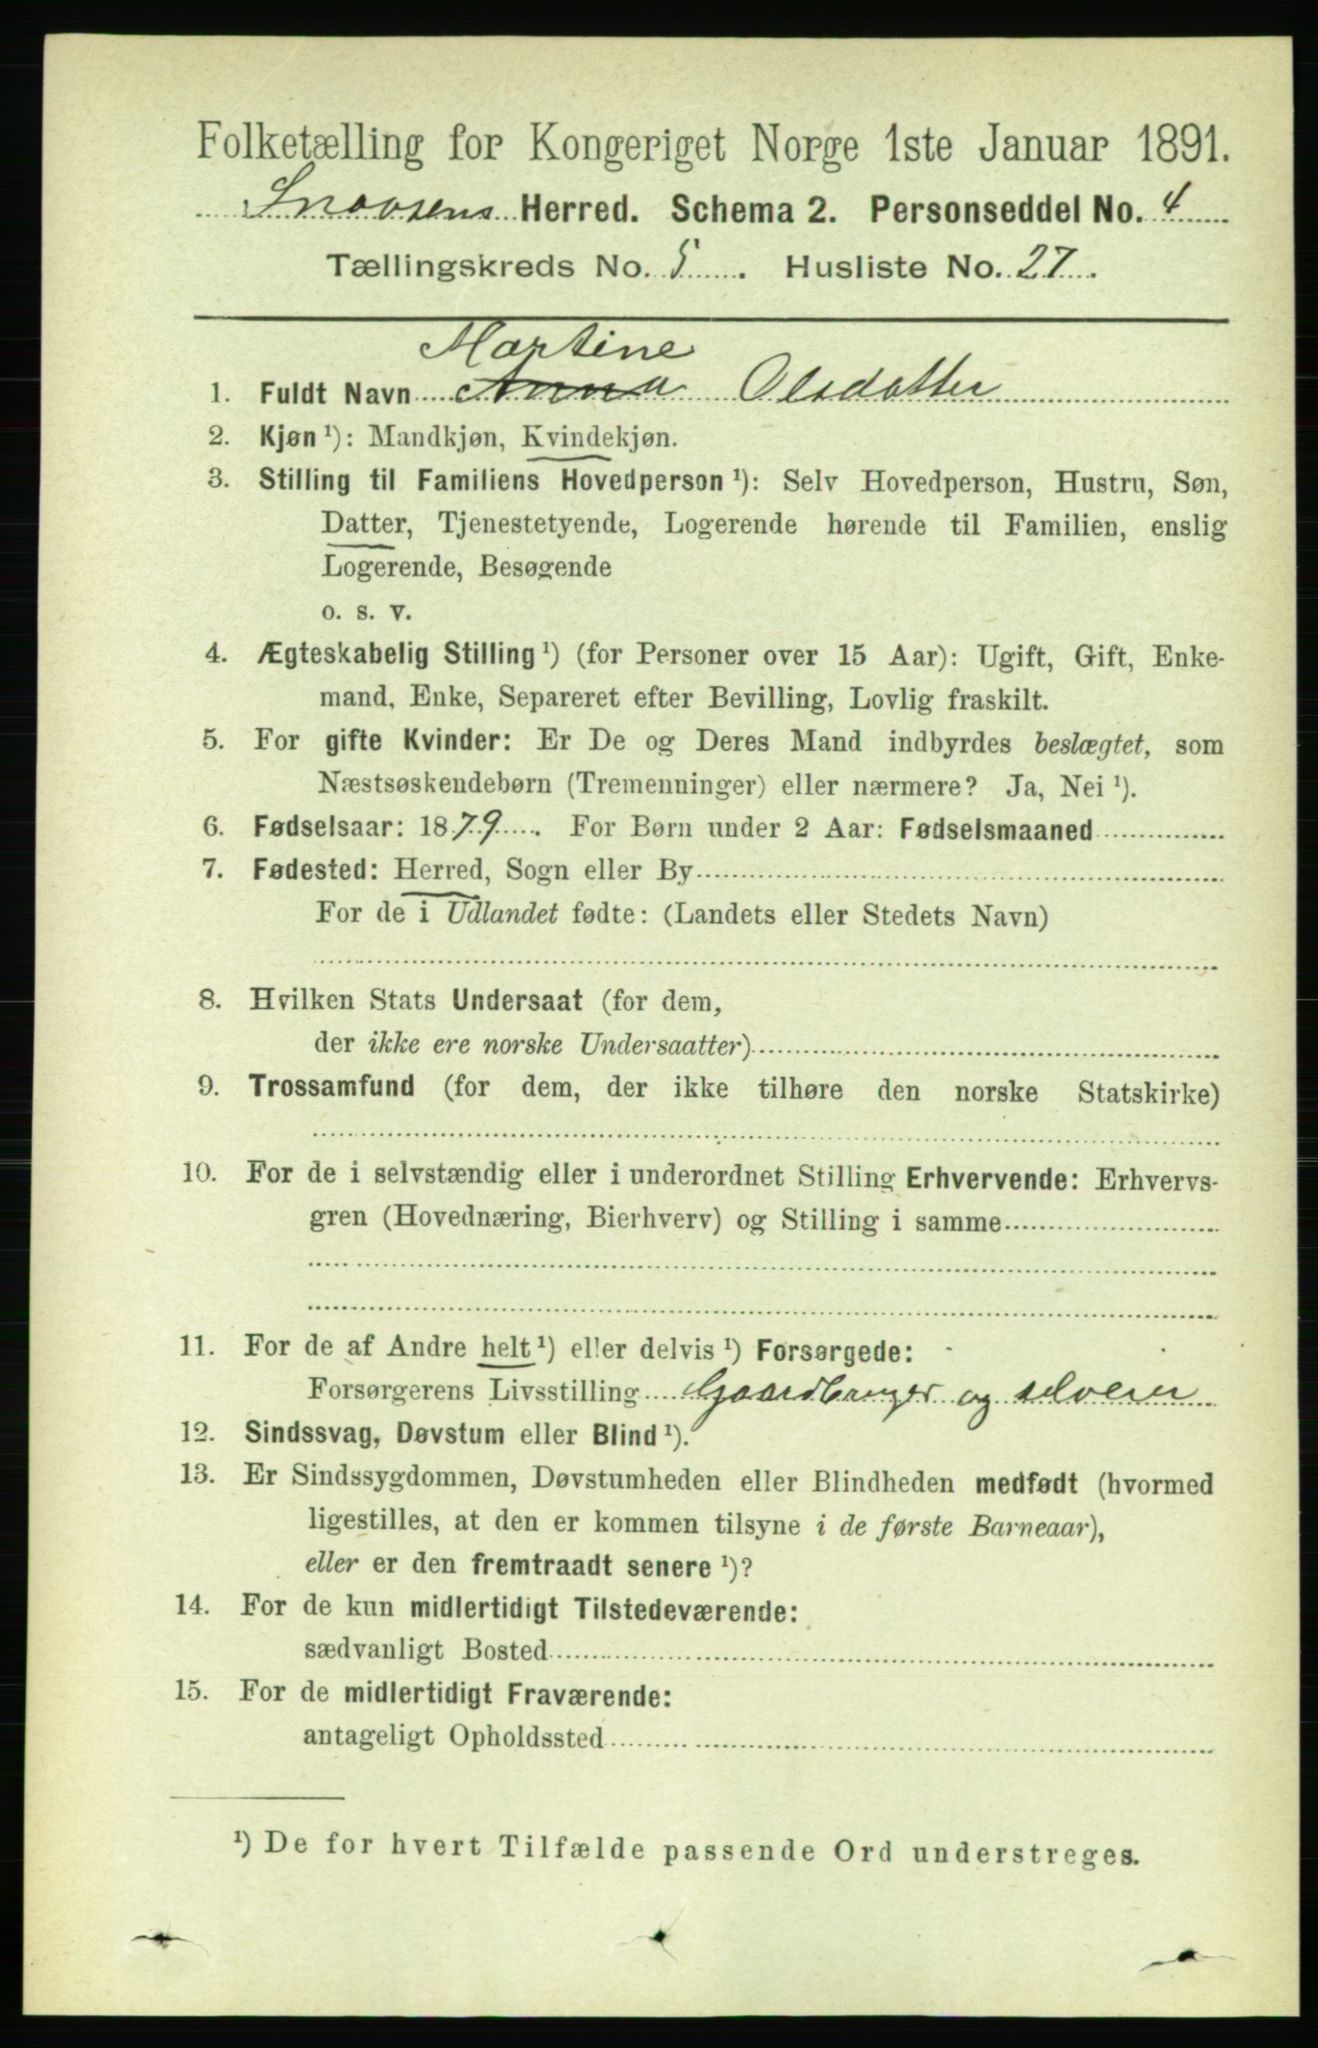 Folketælling for Kongeriget Norge 1ste Januar 1891.
Snaasens Herred. Schema 2. Personseddel No. 4
Tællingskreds No. 5. Husliste No. 27.
Martine
1. Fuldt Navn Anna Olsdatter
2. Kjøn ¹): Mandkjøn, Kvindekjøn.
3. Stilling til Familiens Hovedperson ¹): Selv Hovedperson, Hustru, Søn,
Datter, Tjenestetyende, Logerende hørende til Familien, enslig
Logerende, Besøgende
o. s. v.
4. Ægteskabelig Stilling ¹) (for Personer over 15 Aar): Ugift, Gift, Enke-
mand, Enke, Separeret efter Bevilling, Lovlig fraskilt.
5. For gifte Kvinder: Er De og Deres Mand indbyrdes beslægtet, som
Næstsøskendebørn (Tremenninger) eller nærmere? Ja, Nei ¹).
6. Fødselsaar: 1879. For Børn under 2 Aar: Fødselsmaaned
7. Fødested: Herred, Sogn eller By
For de i Udlandet fødte: (Landets eller Stedets Navn)
8. Hvilken Stats Undersaat (for dem,
der ikke ere norske Undersaatter)
9. Trossamfund (for dem, der ikke tilhøre den norske Statskirke)
10. For de i selvstændig eller i underordnet Stilling Erhvervende: Erhvervs-
gren (Hovednæring, Bierhverv) og Stilling i samme
11. For de af Andre helt ¹) eller delvis ¹) Forsørgede:
Forsørgerens Livsstilling Gaardbruger og selveier
12. Sindssvag, Døvstum eller Blind ¹).
13. Er Sindssygdommen, Døvstumheden eller Blindheden medfødt (hvormed
ligestilles, at den er kommen tilsyne i de første Barneaar),
eller er den fremtraadt senere ¹)?
14. For de kun midlertidigt Tilstedeværende:
sædvanligt Bosted
15. For de midlertidigt Fraværende:
antageligt Opholdssted
¹) De for hvert Tilfælde passende Ord understreges.